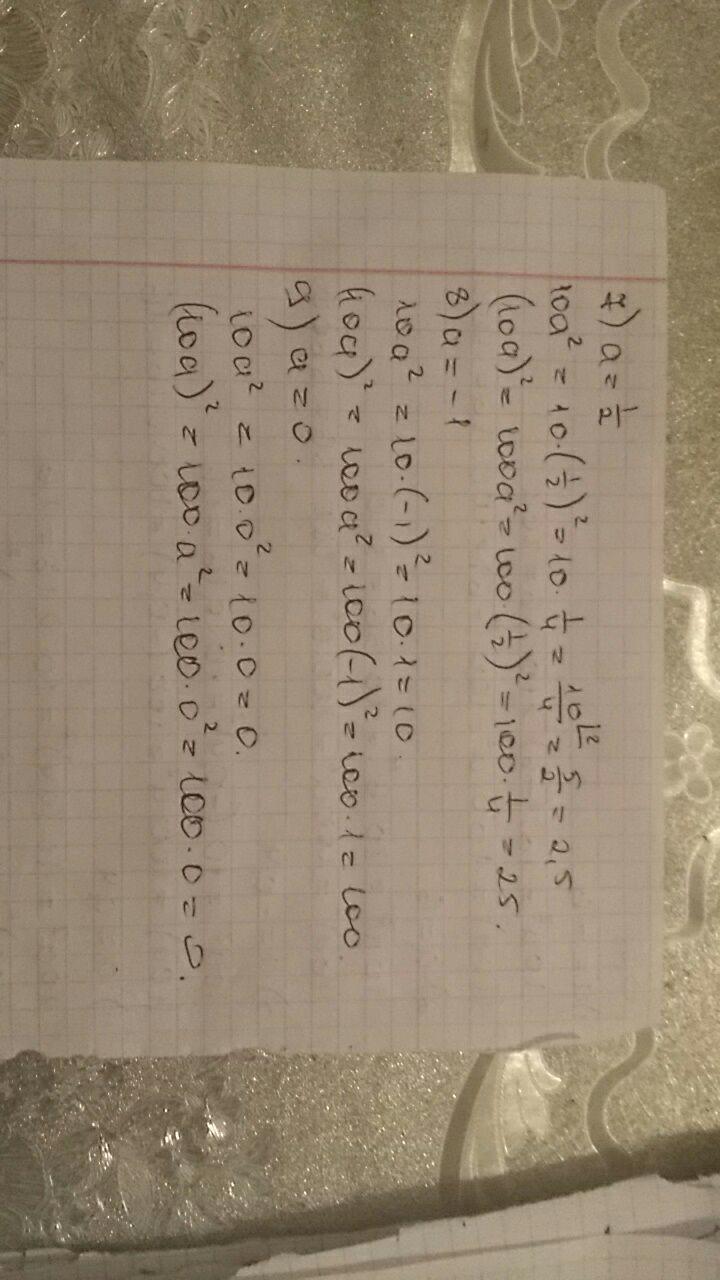 7) a = 1/2
10a² = 10·(1/2)² = 10·1/4 = 10/4 |2 = 5/2 = 2,5
(10a)² = 100a² = 100·(1/2)² = 100·1/4 = 25.
8) a = -1
10a² = 10·(-1)² = 10·1 = 10.
(10a)² = 100a² = 100(-1)² = 100·1 = 100.
9) a = 0.
10a² = 10·0² = 10·0 = 0.
(10a)² = 100·a² = 100·0² = 100·0 = 0.